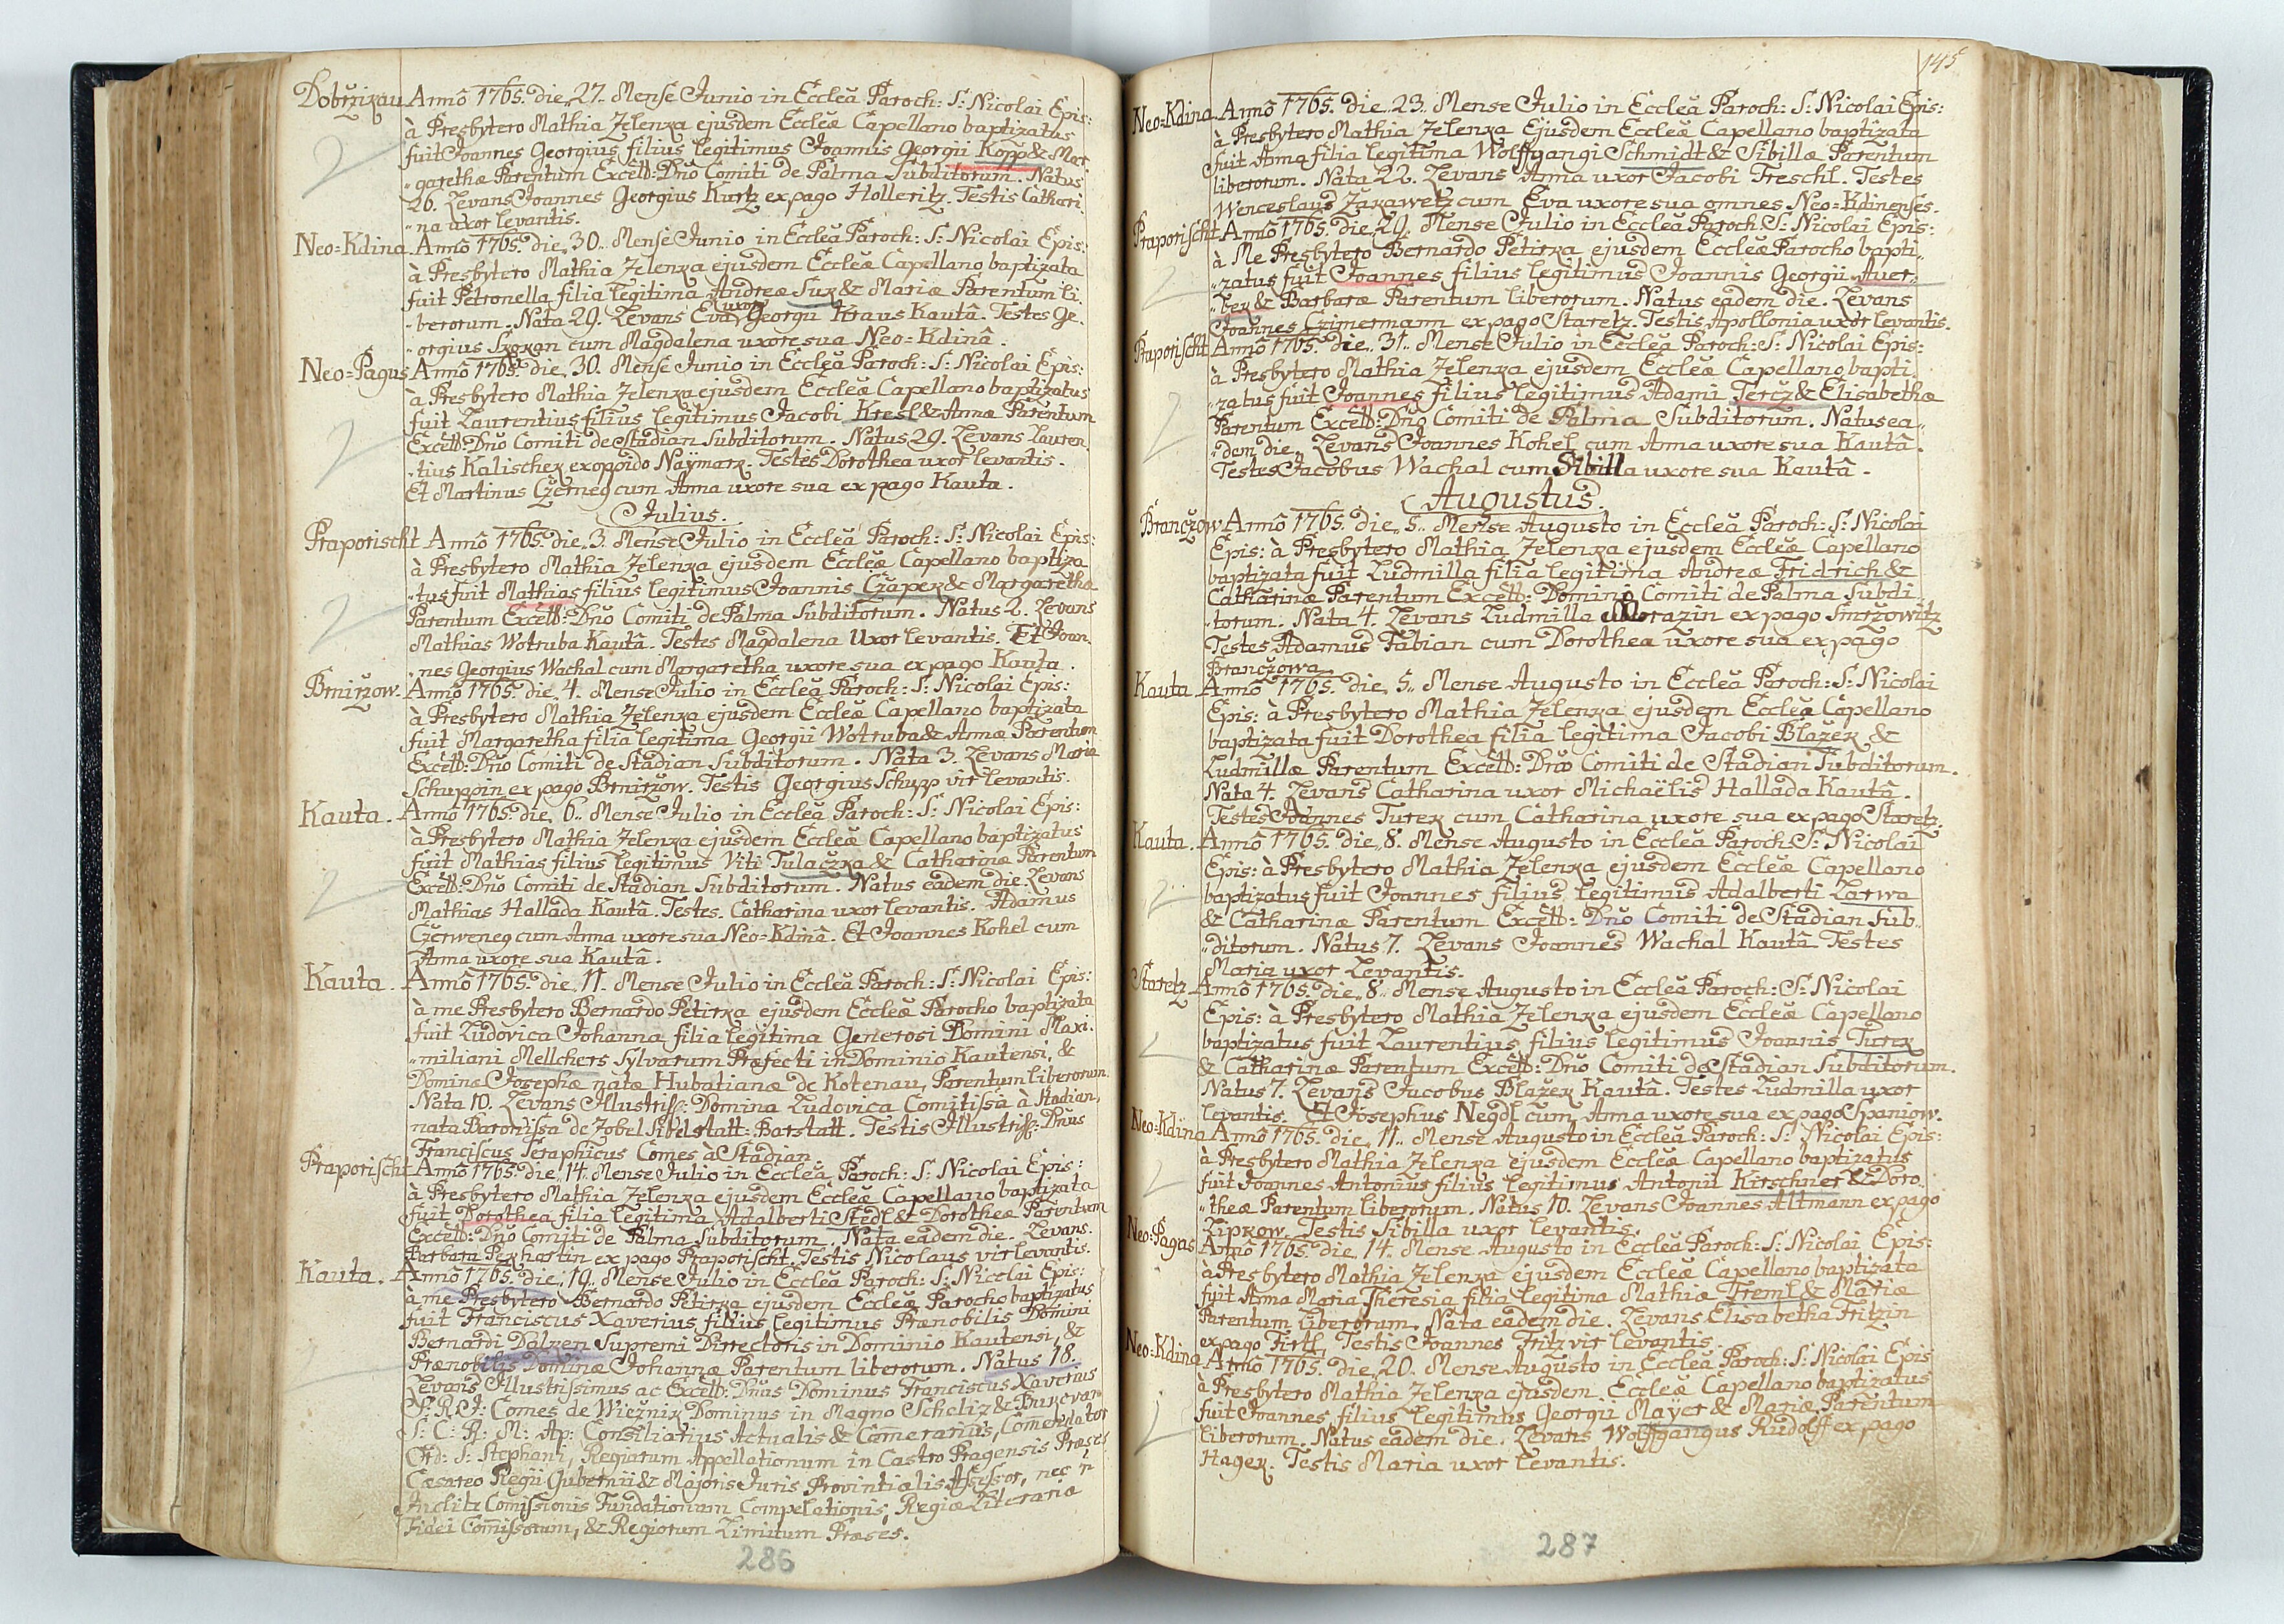 Dobrzikau Anno 1765. die 27. Mense Junio in Ecclea Paroch: S: Nicolai Epis:
à Presbytero Mathia Zelenka ejusdem Eccleæ Capellano baptizatus
fuit Joannes Georgius filius legitimus Joannis Georgii Kopp & Mar-
garethæ Parentum Excell: Dno Comiti de Palma Subditorum. Natus
26. Levans Joannes Georgius Kurtz ex pago Holleritz. Testis Cathari-
na uxor levantis.
Neo-Kdina Anno 1765. die 30. Mense Junio in Ecclea Paroch: S: Nicolai Epis:
à Presbytero Mathia Zelenka ejusdem Eccleæ Capellano baptizata
fuit Petronella filia legitima Andreæ Suk & Mariæ Parentum li-
berorum. Nata 29. Levans Eva uxor Georgii Kraus Kautâ. Testes Ge-
orgius cum Magdalena uxore sua Neo-Kdinâ.
Neo-Pagus Anno 1765. die 30. Mense Junio in Ecclea Paroch: S: Nicolai Epis:
à Presbytero Mathia Zelenka ejusdem Eccleæ Capellano baptizatus
fuit Laurentius filius legitimus Jacobi Kresl & Annæ Parentum
Excell: Dno Comiti de Stadian Subditorum. Natus 29. Levans Lauren-
tius Kalischek ex oppido Naÿmark. Testes Dorothea uxor levantis.
Et Martinus Czerneg cum Anna uxore sua ex pago Kauta.
Julius.
Praporischt Anno 1765. die 3. Mense Julio in Ecclea Paroch: S: Nicolai Epis:
à Presbytero Mathia Zelenka ejusdem Eccleæ Capellano baptiza-
tus fuit Mathias filius legitimus Joannis Czapek & Margarethæ
Parentum Excell: Dno Comiti de Palma Subditorum. Natus 2. Levans
Mathias Wotruba Kautâ. Testes Magdalena Uxor levantis. Et Joan-
nes Georgius Wachal cum Margaretha uxore sua ex pago Kauta.
Brnirzow. Anno 1765. die 4. Mense Julio in Ecclea Paroch: S: Nicolai Epis:
à Presbytero Mathia Zelenka ejusdem Eccleæ Capellano baptizata
fuit Margaretha filia legitima Georgii Wotruba & Annæ Parentum
Excell: Dno Comiti de Stadian Subditorum. Nata 3. Levans Maria
Schuppin ex pago Brnirzow. Testis Georgius Schupp vir levantis.
Kauta. Anno 1765. die 6. Mense Julio in Ecclea Paroch: S: Nicolai Epis:
à Presbytero Mathia Zelenka ejusdem Eccleæ Capellano baptizatus
fuit Mathias filius legitimus Viti Tulaczka & Catharinæ Parentum
Excell: Dno Comiti de Stadian Subditorum. Natus eadem die. Levans
Mathias Hallada Kautâ. Testes. Catharina uxor levantis. Adamus
Czerweneg cum Anna uxore sua Neo-Kdinâ. Et Joannes Kohel cum
Anna uxore sua Kautâ.
Kauta. Anno 1765. die 11. Mense Julio in Ecclea Paroch: S: Nicolai Epis:
à me Presbytero Bernardo Petirka ejusdem Eccleæ Parocho baptizata
fuit Ludovica Johanna filia legitima Generosi Domini Maxi-
miliani Mellchers Sylvarum Præfecti in Dominio Kautensi, &
Dominæ Josephæ natæ Hubatianæ de Kotenau, Parentum liberorum.
Nata 10. Levans Illustriss: Domina Ludovica Comitissa à Stadian,
nata Baronissa de Zobel Sibelstatt: Barstatt. Testis Illustriss: Dnus
Franciscus Seraphicus Comes à Stadian.
Praporischt Anno 1765. die 14. Mense Julio in Ecclea Paroch: S: Nicolai Epis:
à Presbytero Mathia Zelenka ejusdem Eccleæ Capellano baptizata
fuit Dorothea filia legitima Adalberti Stedl & Dorotheæ Parentum
Excell: Dno Comiti de Palma Subditorum. Nata eadem die. Levans
Barbara Pekhartin ex pago Praporischt. Testis Nicolaus vir levantis.
Kauta. Anno 1765. die 19. Mense Julio in Ecclea Paroch: S: Nicolai Epis:
à me Presbytero Bernardo Petirka ejusdem Eccleæ Parocho baptizatus
fuit Franciscus Xaverius filius legitimus Prænobilis Domini
Bernardi Dalken Supremi Dirrectoris in Dominio Kautensi, &
Prænobilis Dominæ Johannæ Parentum liberorum. Natus 18.
Levans Illustrissimus ac Excell: Dnus Dominus Franciscus Xaverius
S: R: J: Comes de Wieznik Dominus in Magno Scheliz &
S: C: R: M: Ap: Consiliarius Actualis & Camerarius, Comendator
Ord: S: Stephani, Regiarum Appellationum in Castro Pragensis Præses
Cæsareo Regii Gubernii & Majoris Juris Provintialis Assessor, nec n
Inclitæ Comissionis Fundationum Compelationis, Regiæ Literariæ
Fidei Comissorum, & Regiorum Limitum Præses.
286
145
Neo-Kdina Anno 1765. die 23. Mense Julio in Ecclea Paroch: S: Nicolai Epis:
à Presbytero Mathia Zelenka Ejusdem Eccleæ Capellano baptizata
fuit Anna filia legitima Wolffgangi Schmidt & Sibillæ Parentum
liberorum. Nata 22. Levans Anna uxor Jacobi Treschl. Testes
Wenceslaus Zakawetz cum Eva uxore sua omnes Neo-Kdinenses.
Praporischt Anno 1765. die 29. Mense Julio in Ecclea Paroch: S: Nicolai Epis:
à Me Presbytero Bernardo Petirka ejusdem Eccleæ Parocho bapti-
zatus fuit Joannes filius legitimus Joannis Georgii Auer-
bek & Barbaræ Parentum liberorum. Natus eadem die. Levans
Joannes Czimermann ex pago Staretz. Testis Apollonia uxor levantis.
Praporischt Anno 1765. die 31. Mense Julio in Ecclea Paroch: S: Nicolai Epis:
à Presbytero Mathia Zelenka ejusdem Eccleæ Capellano bapti-
zatus fuit Joannes filius legitimus Adami Tercz & Elisabethæ
Parentum Excell: Dno Comiti de Palma Subditorum. Natus ea-
dem die. Levans Joannes Kohel cum Anna uxore sua Kautâ.
Testes Jacobus Wachal cum Sibilla uxore sua Kautâ.
Augustus.
Branczow Anno 1765. die 5. Mense Augusto in Ecclea Paroch: S: Nicolai
Epis: à Presbytero Mathia Zelenka ejusdem Eccleæ Capellano
baptizata fuit Ludmilla filia legitima Andreæ Fridrich &
Catharinæ Parentum Excell: Domino Comiti de Palma Subdi-
torum. Nata 4. Levans Ludmilla Morazin ex pago Smrzowitz
Testes Adamus Fabian cum Dorothea uxore sua ex pago
Branczowa
Kauta Anno 1765. die 5. Mense Augusto in Ecclea Paroch: S: Nicolai
Epis: à Presbytero Mathia Zelenka ejusdem Eccleæ Capellano
baptizata fuit Dorothea filia legitima Jacobi Blazek &
Ludmillæ Parentum Excell: Dno Comiti de Stadian Subditorum.
Nata 4. Levans Catharina uxor Michaëlis Hallada Kautâ.
Testes Joannes Turek cum Catharina uxore sua ex pago Staretz.
Kauta. Anno 1765. die 8. Mense Augusto in Ecclea Paroch: S: Nicolai
Epis: à Presbytero Mathia Zelenka ejusdem Eccleæ Capellano
baptizatus fuit Joannes filius legitimus Adalberti Larwa
& Catharinæ Parentum Excell: Dno Comiti de Stadian Sub-
ditorum. Natus 7. Levans Joannes Wachal Kautâ Testes
Maria uxor Levantis.
Staretz Anno 1765. die 8. Mense Augusto in Ecclea Paroch: S: Nicolai
Epis: à Presbytero Mathia Zelenka ejusdem Eccleæ Capellano
baptizatus fuit Laurentius filius legitimus Joannis Turek
& Catharinæ Parentum Excell: Dno Comiti de Stadian Subditorum.
Natus 7. Levans Jacobus Blazek Kautâ. Testes Ludmilla uxor
levantis. Et Josephus Negdl cum Anna uxore sua ex pago Spaniow.
Neo-Kdina Anno 1765. die 11. Mense Augusto in Ecclea Paroch: S: Nicolai Epis:
à Presbytero Mathia Zelenka ejusdem Eccleæ Capellano baptizatus
fuit Joannes Antonius filius legitimus Antonii Kirschner & Doro-
theæ Parentum liberorum. Natus 10. Levans Joannes Altmann ex pago
Lipkow. Testis Sibilla uxor levantis.
Neo-Pagus Anno 1765. die 14. Mense Augusto in Ecclea Paroch: S: Nicolai Epis:
à Presbytero Mathia Zelenka ejusdem Eccleæ Capellano baptizata
fuit Anna Maria Theresia filia legitima Mathiæ Treml & Mariæ
Parentum Liberorum. Nata eadem die. Levans Elisabetha Fritzin
ex pago Firth. Testis Joannes Fritz vir levantis.
Neo-Kdina Anno 1765. die 20. Mense Augusto in Ecclea Paroch: S: Nicolai Epis
à Presbytero Mathia Zelenka ejusdem Eccleæ Capellano baptizatus
fuit Joannes filius legitimus Georgii Mayer & Mariæ Parentum
liberorum. Natus eadem die. Levans Wolffgangus Rudolff ex pago
Hagek. Testis Maria uxor levantis.
287